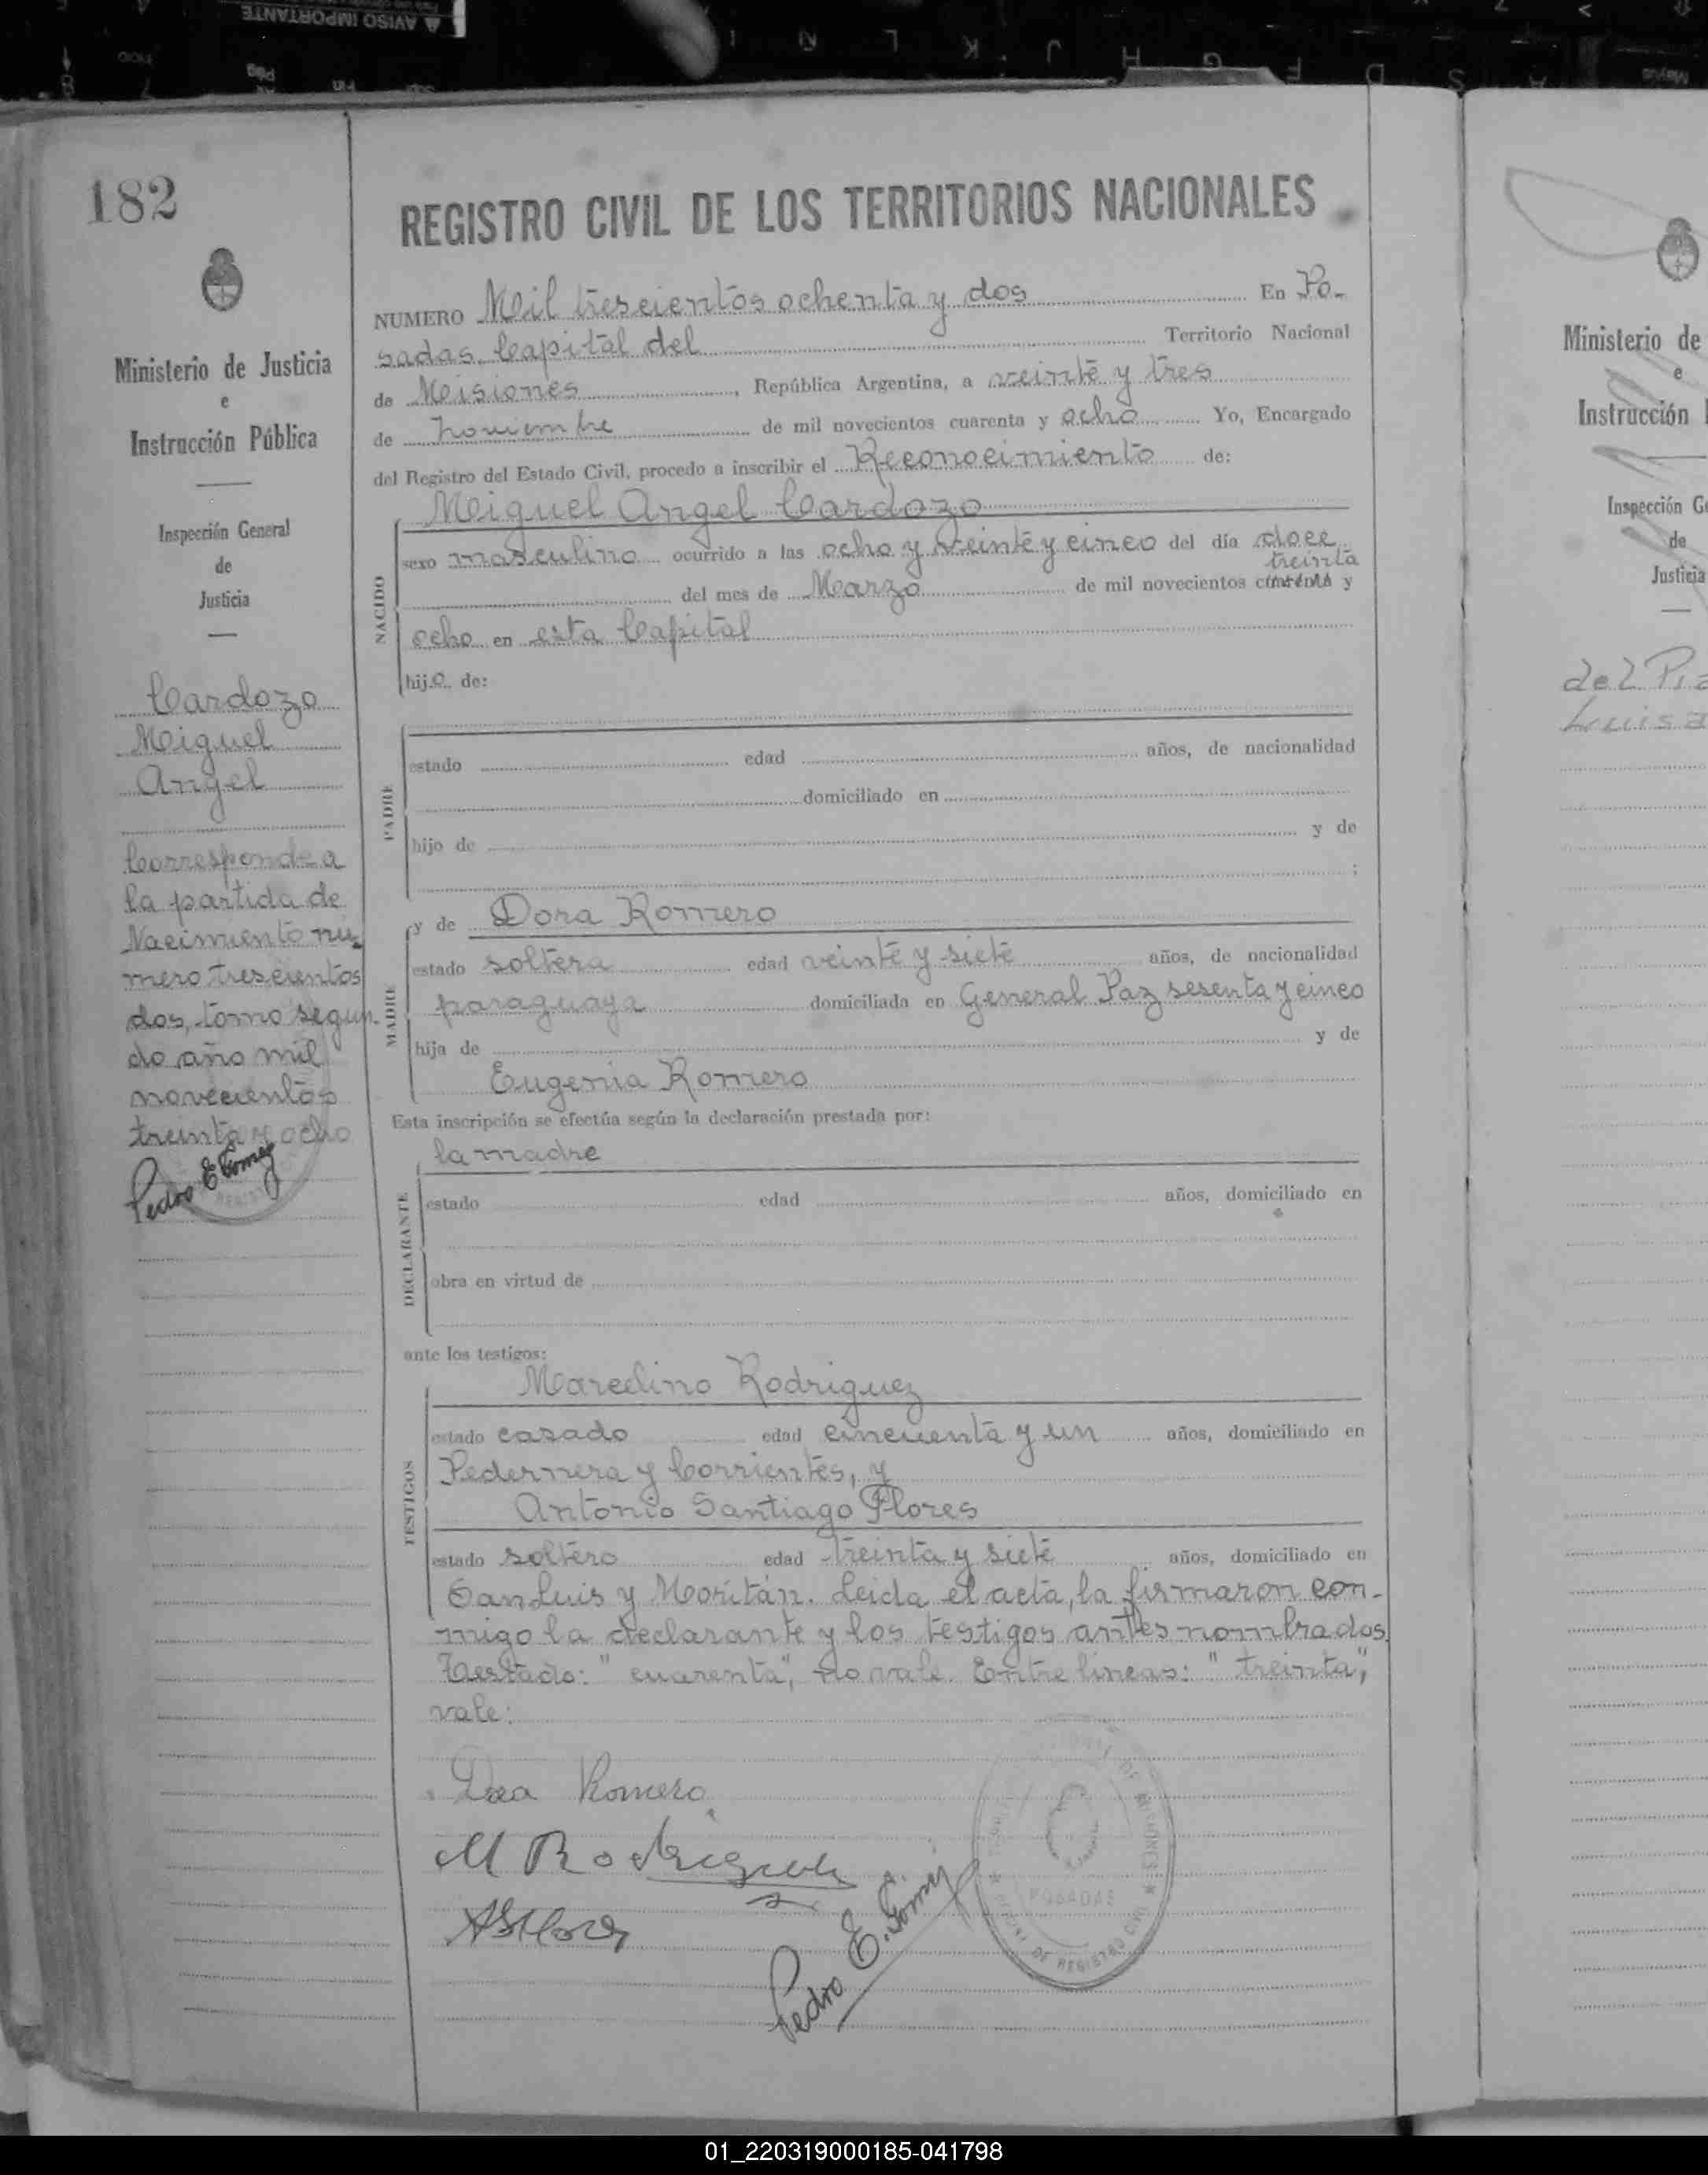 AVISO IMPORTANTE
182
REGISTRO CIVIL DE LOS TERRITORIOS NACIONALES
Ministerio de Justicia
e
Instrucción Pública
Inspección General
de
Justicia
Cardozo
Miguel
Angel
Corresponde a
la partida de
Nacimiento nú-
mero trescientos
dos, tomo segun-
do año mil
novecientos
treinta y ocho
Pedro E Gomez
NUMERO Mil trescientos ochenta y dos En Po-
sadas, Capital del Territorio Nacional
de Misiones, República Argentina, a veinte y tres
de noviembre de mil novecientos cuarenta y ocho Yo, Encargado
del Registro del Estado Civil, procedo a inscribir el Reconocimiento de:
NACIDO
Miguel Angel Cardozo
sexo masculino ocurrido a las ocho y veinte y cinco del día doce
treinta
del mes de Marzo de mil novecientos cuarenta y
ocho en esta Capital
hijo de:
PADRE
estado edad años, de nacionalidad
domiciliado en
hijo de y de
;
MADRE
y de Dora Romero
estado soltera edad veinte y siete años, de nacionalidad
paraguaya domiciliada en General Paz sesenta y cinco
hija de y de
Eugenia Romero
Esta inscripción se efectúa según la declaración prestada por:
DECLARANTE
la madre
estado edad años, domiciliado en
obra en virtud de
ante los testigos:
TESTIGOS
Marcelino Rodriguez
estado casado edad cincuenta y un años, domiciliado en
Pedernera y Corrientes, y
Antonio Santiago Flores
estado soltero edad treinta y siete años, domiciliado en
San Luis y Moritán. Leida el acta, la firmaron con-
migo la declarante y los testigos antes nombrados.
Testado: "cuarenta", no vale. Entre lineas: "treinta",
vale.
Dora Romero
M Rodriguez
ASFlores
Pedro E. Gomez
POSADAS
DE REGISTRO CIVIL
MISIONES
Ministerio de
e
Instrucción
Inspección Ge
de
Justicia
del Pi
Luisa
01_220319000185-041798